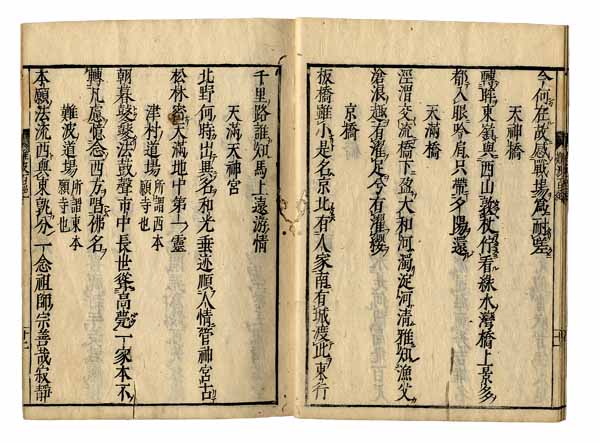 今何在故感戰場爲耐嗟
天神橋
轉眸東嶺與西山歇杖佇看綠水灣橋上景多
都入眼吟肩只帶夕陽還
天滿橋
涇渭交流橋下盈大和河濁淀河清雅知漁父
滄浪趣有濯足兮有濯纓
京橋
板橋雖小是名京北有人家南有城渡此東行
千里路誰知馬上遠游情
天滿天神宮
北野何時出與名和光垂迹順人情管神宮古
松林密天滿地中第一靈
津村道場 所謂西本願寺也
朝暮鼕鼕法鼓聲市中長世聳高甍一家本不
轉凡慮憶念西方唱佛名
難波道場 所謂東本願寺也
本願法流西與東孰分一念祖師宗善哉寂靜